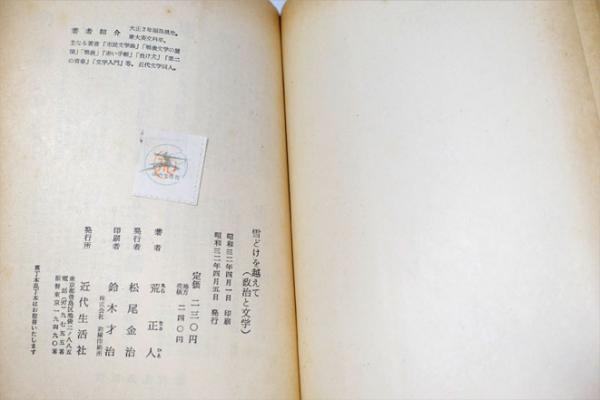 著者紹介
大正2年福島県生。
東大英文科卒。
主なる著書『市民文学論』『戦後文学の展
望』『戦後』『赤い手帳』『負け犬』『第二
の青春』『文学入門』等。近代文学同人。
雪どけを越えて
(政治と文学)
昭和三二年四月一日 印刷
昭和三二年四月五日 発行
定価 二三〇円
地方売価 二四〇円
著者 荒正人
発行者 松尾金治
印刷者 鈴木才治
株式会社
発行所 近代生活社
東京都豊島区池袋二ノ八八五
電話(97)九七五五番
振替東京一九四九〇番
落丁本乱丁本はお取替いたします